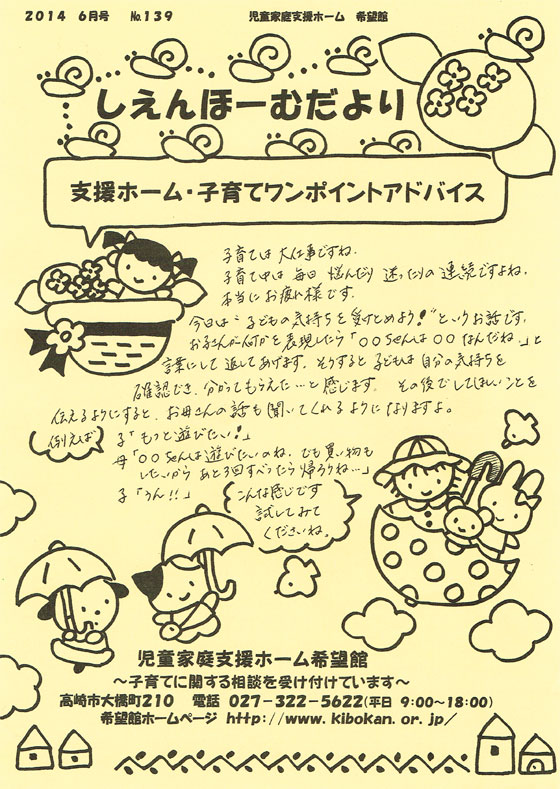 2014 6月号 No.139 児童家庭支援ホーム 希望館
しえんほーむだより
支援ホーム・子育てワンポイントアドバイス
子育ては 大仕事ですね。
子育て中は 毎日 悩んだり 迷ったりの 連続ですよね。
本当にお疲れ様です。
今日は“子どもの気持ちを受けとめよう！”というお話です。
お子さんが何かを表現したら「〇〇ちゃんは〇〇なんだね。」と
言葉にして返してあげます。そうすると子どもは自分の気持ちを
確認でき、分かってもらえた…と感じます。その後でしてほしいことを
伝えるようにすると、お母さんの話も聞いてくれるようになりますよ。
例えば
子「もっと遊びたい！」
母「〇〇ちゃんは遊びたいのね。でも買い物も
したいから あと3回すべったら帰ろうね…」
子「うん！！」
こんな感じです
試してみて
くださいね。
児童家庭支援ホーム希望館
～子育てに関する相談を受け付けています～
高崎市大橋町210 電話 027-322-5622(平日 9:00～18:00)
希望館ホームページ http://www.kibokan.or.jp/